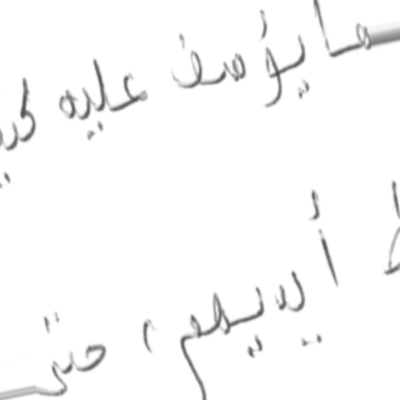 ما يؤسف عليه
أيديهم، حتى